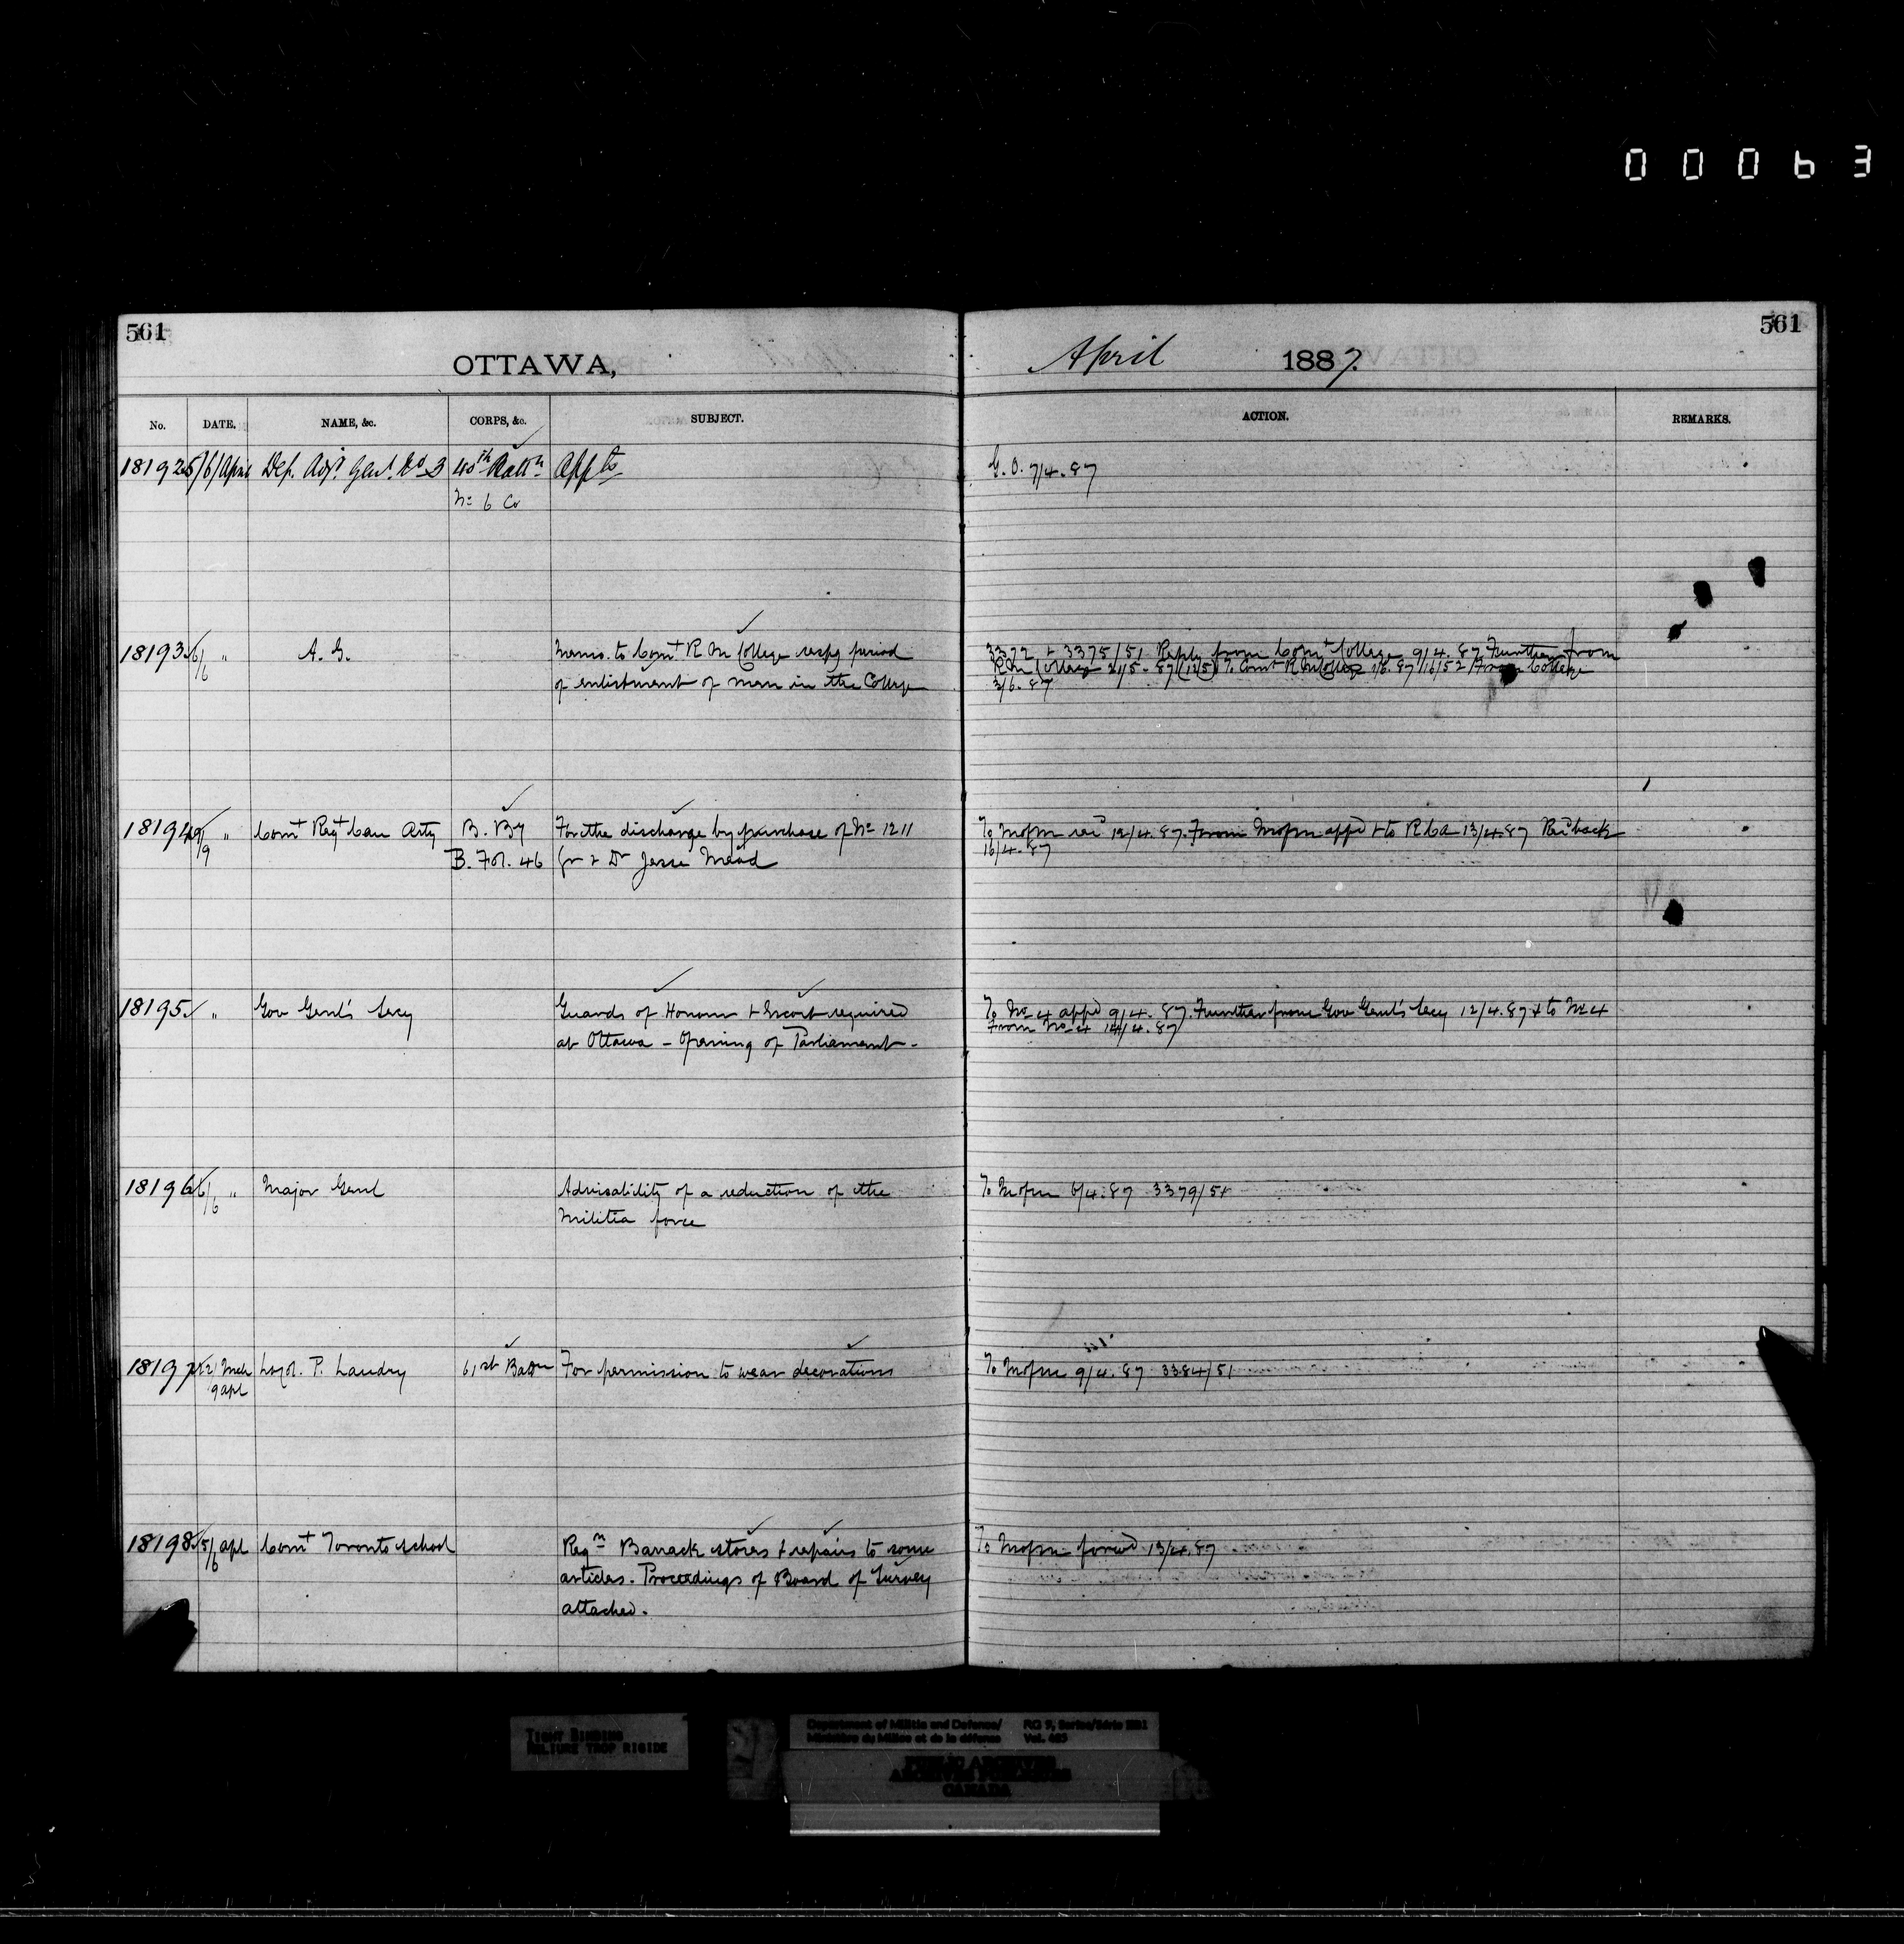 00063
561
561
OTTAWA,
April 1887.
No. DATE. NAME, &c. CORPS, &c. SUBJECT. ACTION. REMARKS.
18192 5/6/April Dep. Adjt. Genl. No 3 40th Battn Appts G. O. 7/4.87
No 6 Co
18193 6/6 " A. G. Memo. to Comt R M College respg period 3372 & 3375/51 Reply from Comt College 9/4.87 Further from
of enlistment of men in the College R M College 21/5.87 To Comt R M College 1/6.87 16/52 From College
3/6.87
18194 9/9 " Comt Regt Can Arty B. By For the discharge by purchase of No 1211 To Mofm rec 12/4.87. From Mofm appd & to RCA 13/4.87 Recd back
B. Fol. 46 Gr & Dr Jesse Mead 16/4.87
18195 " Gov Genl's Secy Guards of Honour & Escort required To No 4 appd 9/4.87. Further from Gov Genl's Secy 12/4.87 & to No 4
at Ottawa - Opening of Parliament - From No 4 14/4.87
18196 6/6 " Major Genl Advisability of a reduction of the To Mofm 6/4.87 3379/51
Militia force
18197 22/Mch Lt Col. P. Landry 61st Battn For permission to wear decorations To Mofm 9/4.87 3384/51
9 apl
18198 5/6 apl Comt Toronto School Regn Barrack stores & repairs to some To Mofm forwd 13/4.87
articles. Proceedings of Board of Survey
attached.
TIGHT BINDING
RELIURE TROP RIGIDE
Department of Militia and Defence/ RG 9, Series/Série IIB1
Ministère du Milice et de la défense Vol.
PUBLIC ARCHIVES
ARCHIVES PUBLIQUES
CANADA